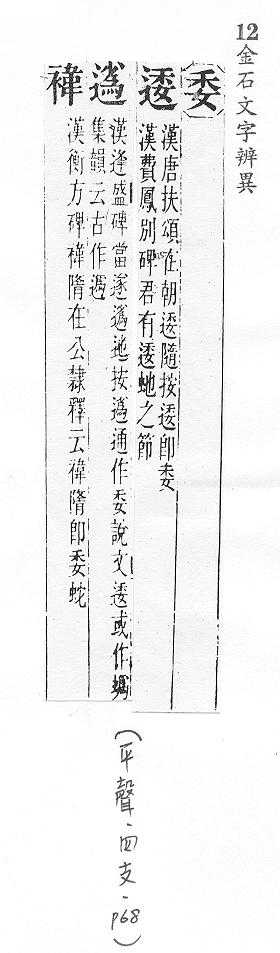 12金石文字辨異
委
逶
漢唐扶頌在朝逶隨按逶即委
漢費鳳別碑君有逶虵之節
漢逢盛碑當遂迆按通作委說文逶或作
集韻云古作
禕
漢衡方碑禕隋在公隸釋云禕隋即委蛇
(平聲.四支.p68)